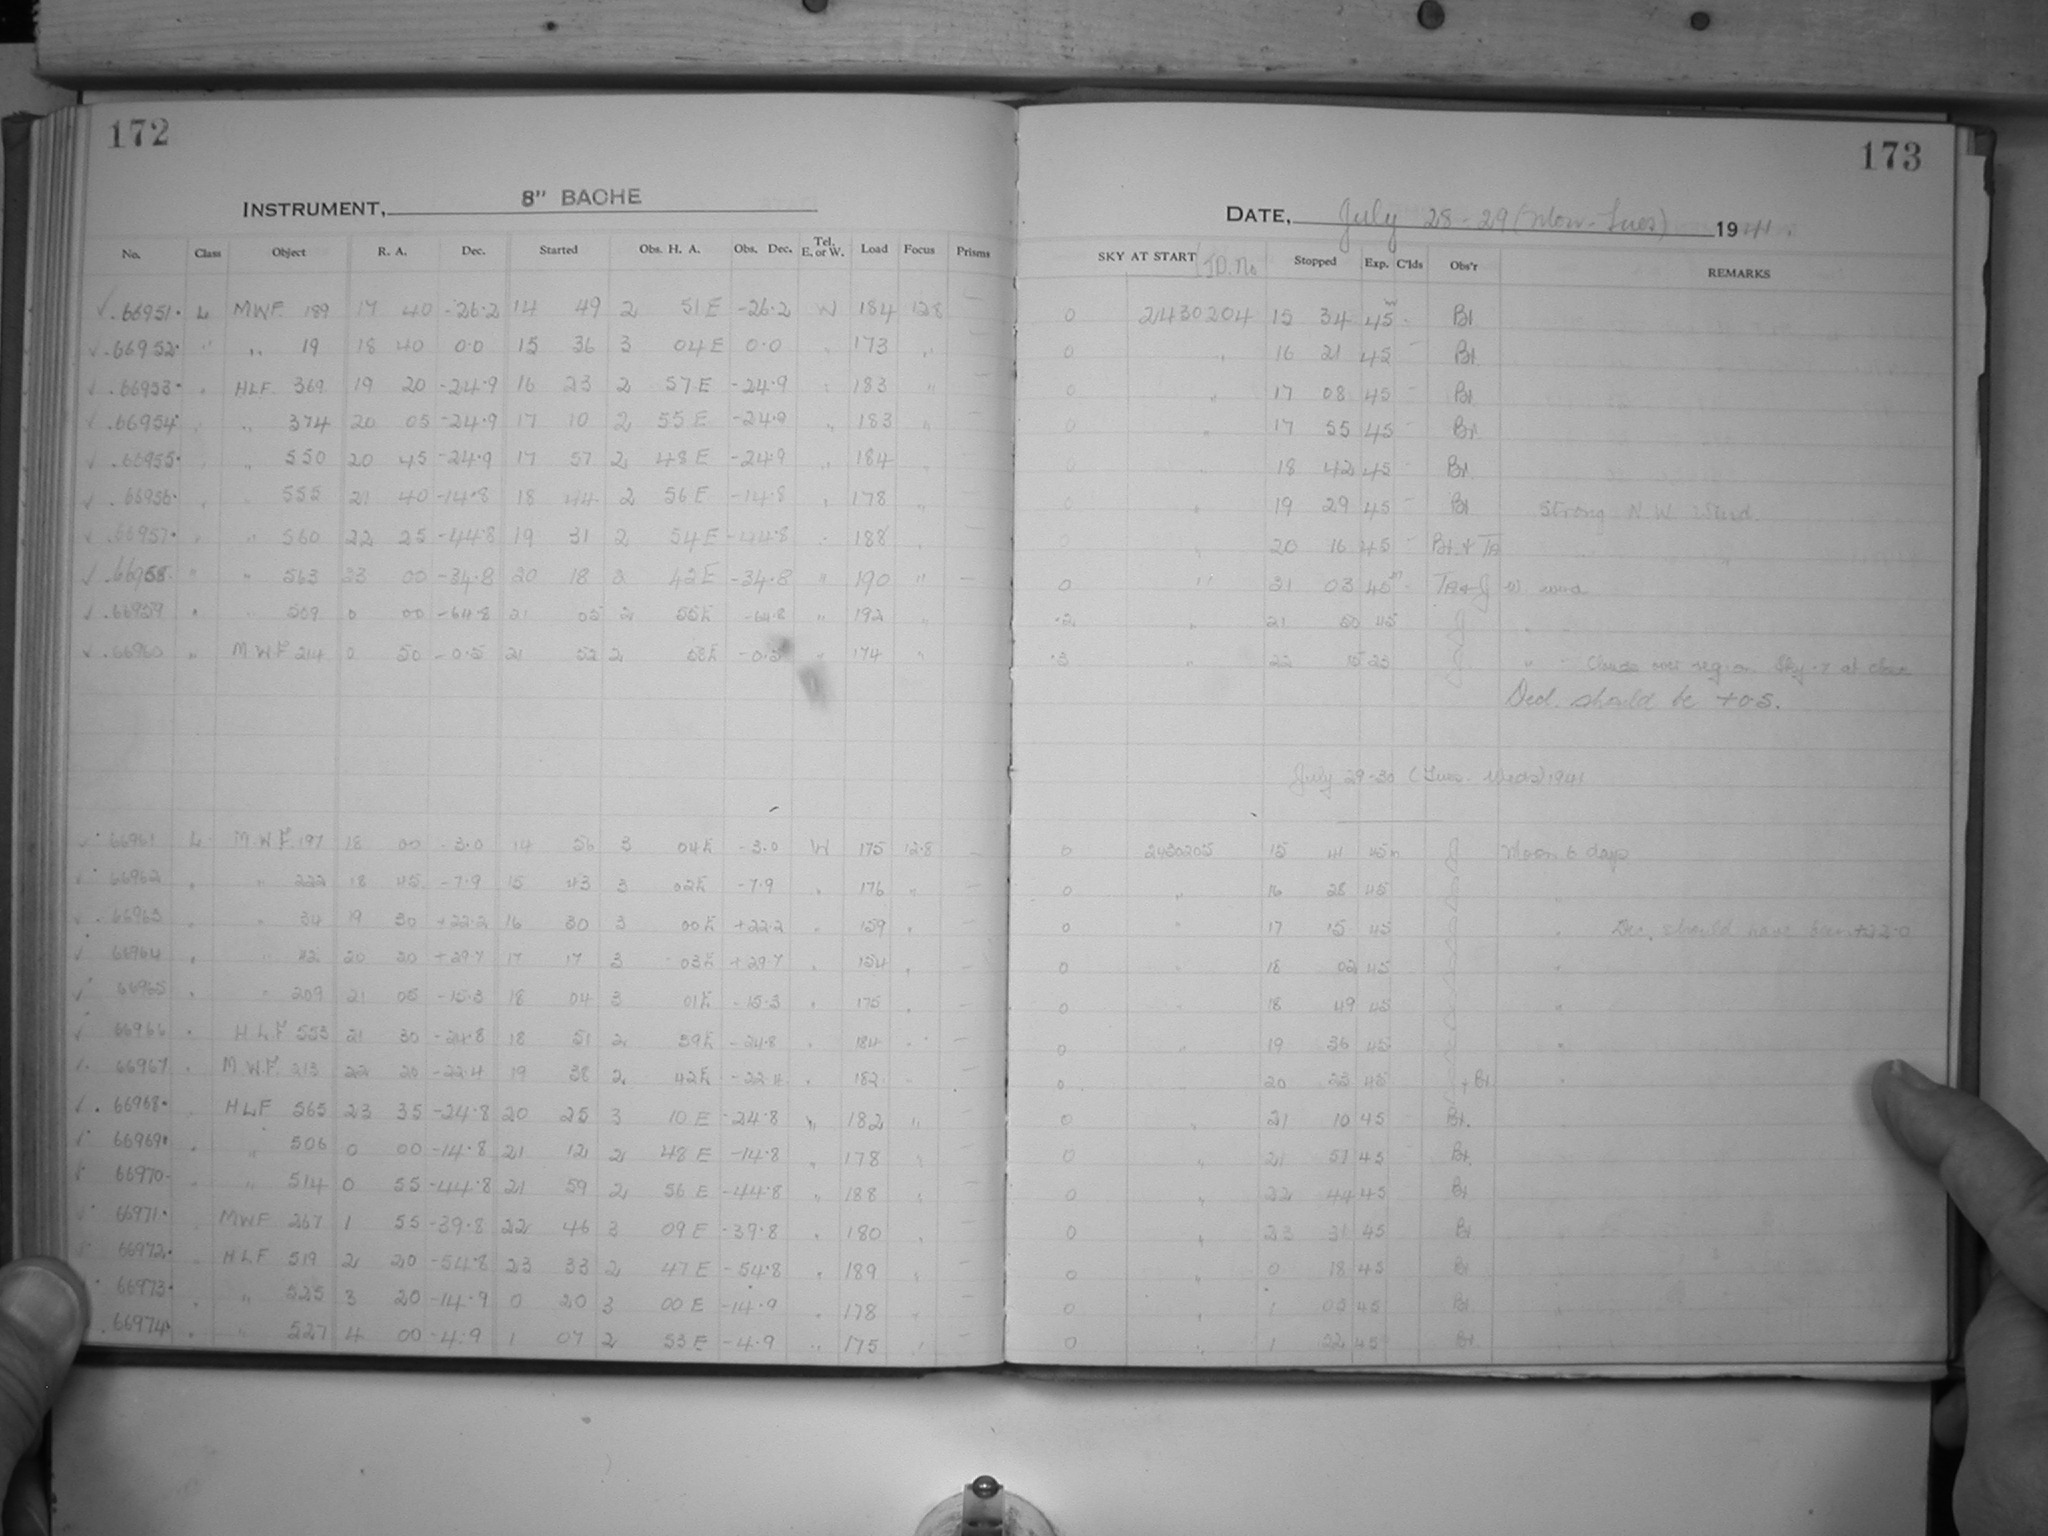 172
INSTRUMENT, 8" BACHE
No. Class Object R. A. Dec. Started Obs. H. A. Obs. Dec. Tel. E. or W. Load Focus Prisms
✓ .66951. L MWF. 189 17 40 -26.2 14 49 2 51 E -26.2 W 184 12.8 —
✓ .66952. " " 19 18 40 0.0 15 36 3 04 E 0.0 " 173 " —
✓ .66953. " HLF. 369 19 20 -24.9 16 23 2 57 E -24.9 " 183 " —
✓ .66954 " " 374 20 05 -24.9 17 10 2 55 E -24.9 " 183 " —
✓ .66955. " " 550 20 45 -24.9 17 57 2 48 E -24.9 " 184 " —
✓ .66956. " " 555 21 40 -14.8 18 44 2 56 E -14.8 " 178 " —
✓ .66957. " " 560 22 25 -44.8 19 31 2 54 E -44.8 " 188 " —
✓ .66958. " " 563 23 00 -34.8 20 18 2 42 E -34.8 " 190 " —
✓ .66959 " " 509 0 00 -64.8 21 05 2 55 E -64.8 " 192 "
✓ .66960 " M.W.F. 214 0 50 -0.5 21 52 2 58 E -0.5 " 174 "
✓ 66961 L M.W.F. 197 18 00 -3.0 14 56 3 04 E -3.0 W 175 12.8 —
✓ 66962 " " 222 18 45 -7.9 15 43 3 02 E -7.9 " 176 " —
✓ 66963 " " 34 19 30 +22.2 16 30 3 00 E +22.2 " 159 " —
✓ 66964 " " 42 20 20 +29.7 17 17 3 03 E +29.7 " 154 " —
✓ 66965 " " 209 21 05 -15.3 18 04 3 01 E -15.3 " 175 " —
✓ 66966 " H.L.F. 553 21 30 -24.8 18 51 2 59 E -24.8 " 184 " —
✓ 66967 " M.W.F. 213 22 20 -22.4 19 38 2 42 E -22.4 " 182 " —
✓ .66968. " HLF 565 23 35 -24.8 20 25 3 10 E -24.8 " 182 " —
✓ 66969. " " 506 0 00 -14.8 21 12 2 48 E -14.8 " 178 " —
✓ 66970. " " 514 0 55 -44.8 21 59 2 56 E -44.8 " 188 " —
✓ 66971. " MWF 267 1 55 -39.8 22 46 3 09 E -39.8 " 180 " —
66972. " HLF 519 2 20 -54.8 23 33 2 47 E -54.8 " 189 " —
66973. " " 525 3 20 -14.9 0 20 3 00 E -14.9 " 178 " —
.66974 " " 527 4 00 -4.9 1 07 2 53 E -4.9 " 175 " —
173
DATE, July 28-29 (Mon-Tues) 1941.
SKY AT START J.D. No Stopped Exp. C'lds Obs'r REMARKS
0 2430204 15 34 45m - Bt
0 " 16 21 45 - Bt.
0 " 17 08 45 - Bt.
0 " 17 55 45 - Bt.
0 " 18 42 45 Bt.
0 " 19 29 45 - Bt Strong N.W. Wind.
0 " 20 16 45 - Bt. & TA "
0 " 21 03 45m - TA & J W. wind
.2 " 21 50 45 J "
.3 " 22 15 23 J " Clouds over region Sky .7 at close
Decl. should be +0.5.
July 29-30 (Tues-Weds) 1941
0 2430205 15 41 45m J Moon 6 days
0 " 16 28 45 J "
0 " 17 15 45 J " Dec. should have been +32.0
0 " 18 02 45 J "
0 " 18 49 45 J "
0 " 19 36 45 J "
0 " 20 23 45 J + Bt "
0 " 21 10 45 Bt.
0 " 21 57 45 Bt.
0 " 22 44 45 Bt
0 " 23 31 45 Bt
0 " 0 18 45 Bt
0 " 1 05 45 Bt.
0 " 1 22 45 Bt